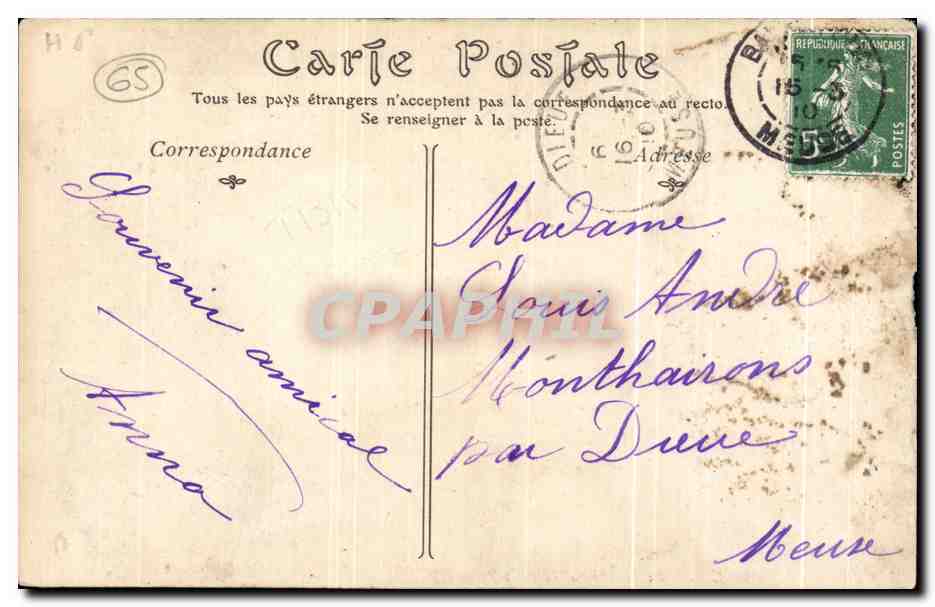 H 8
65
Carte Postale
Tous les pays étrangers n'acceptent pas la correspondance au recto.
Se renseigner à la poste.
Correspondance
Adresse
REPUBLIQUE FRANÇAISE
POSTES
BA
15 - 3
10
MEUSE
DIEUE
MEUSE
6
16 - 3
10
Souvenir amical
Anna
Madame
Louis André
Monthairons
par Dieue
Meuse
CPAPHIL